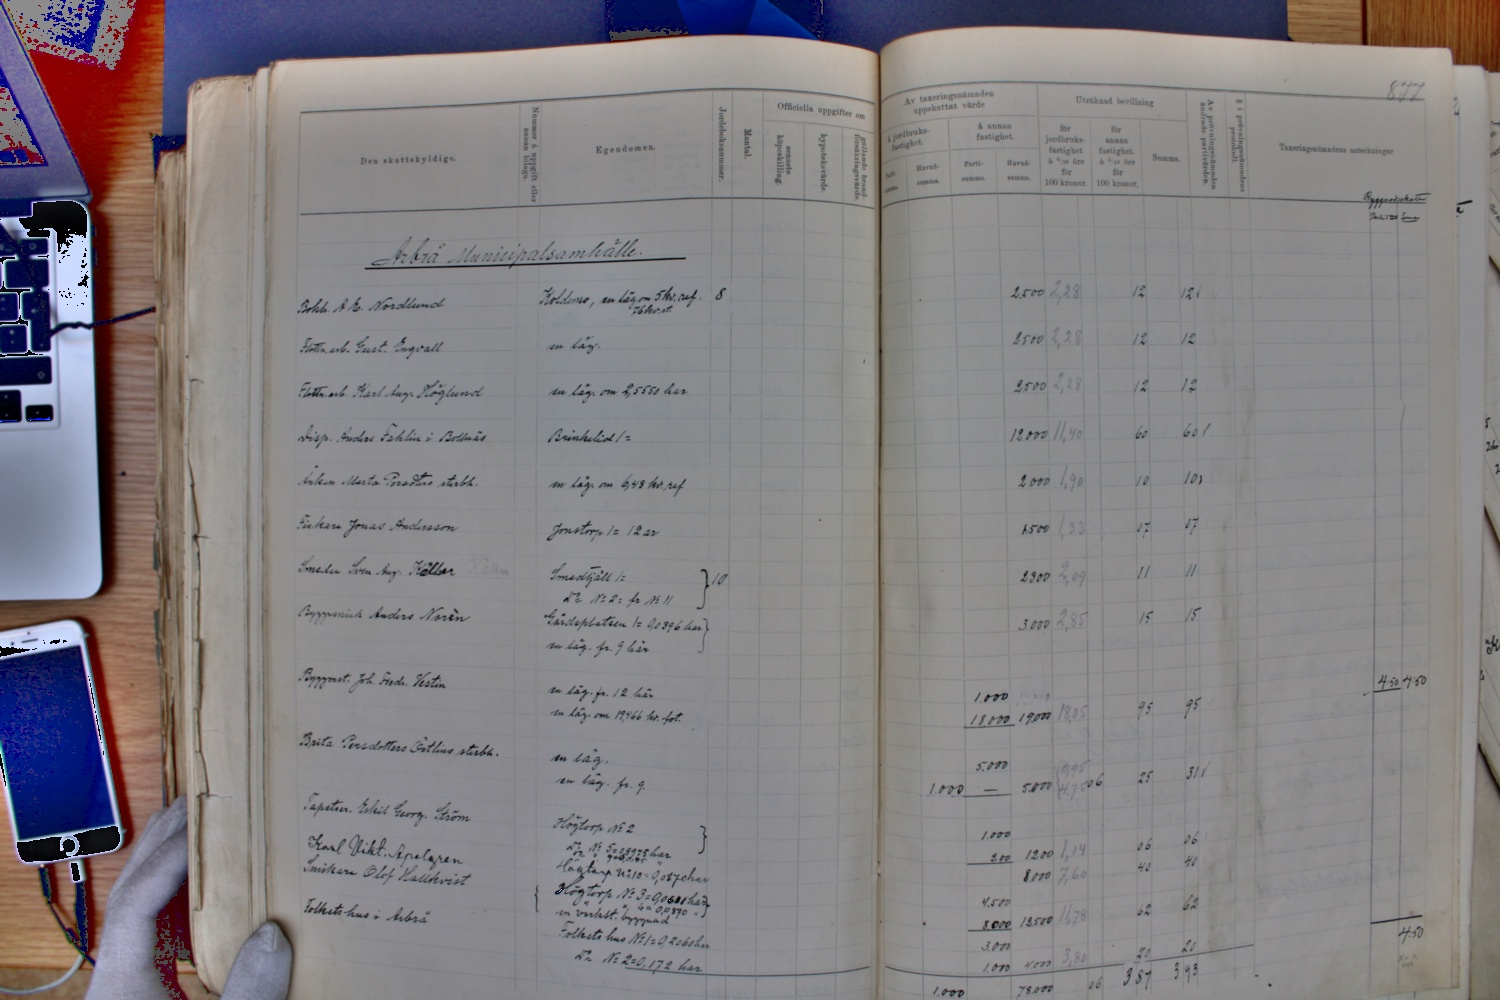 877
Den skattskyldige.
Nummer å uppgift eller annan bilaga.
Egendomen.
Jordeboksnummer.
Mantal.
Officiella uppgifter om
senaste köpeskilling.
hypoteksvärde.
gällande brandförsäkringsvärde.
Av taxeringsnämnden uppskattat värde
å jordbruksfastighet.
å annan fastighet.
Partisumma.
Huvudsumma.
Partisumma.
Huvudsumma.
Uträknad bevillning
för jordbruksfastighet å 6/10 öre för 100 kronor.
för annan fastighet. å 5/10 öre för 100 kronor.
Summa.
Av prövningsnämnden ändrade partivärden
§ i prövningsnämndens protokoll.
Taxeringsnämndens anteckningar
Arbrå Municipalsamhälle.
A. E. Nordlund Koldemo, en läg. om 5 kv. ref. 76 kv. st. 8 2.500 2,28 12 12
Gust. Engvall en läg. 2500 2,28 12 12
Karl Aug. Höglund en läg. om 2,5550 har 2.500 2,28 12 12
Disp. Anders Dahlin i Bollnäs Brinkelid 1= 12.000 11,40 60 60
Änkan Marta Persdters sterbh. en läg. om 6,48 kv. ref 2.000 1,90 10 10
Jonas Andersson Jonstorp 1= 12 ar 1,33 07 07
Smeden Sven Aug. Källar Smedtjäll 1= 10 2,09 11 11
Do No 2= fr. No 11
Anders Norén Gårdsplatsen 1= 0,0396 har 3.000 2,85 15 15
en läg. fr. 9 här
Byggmst. Joh. Fredr. Vestin en läg. fr. 12 här 1.000 4.50 4.50
en läg. om 19,466 kv. fot. 18.000 19.000 18,05 95 95
Brita Persdotters Östlins sterbh. en läg. 5.000
en läg. fr. 9 1.000 — 5.000 06 25 31
Georg Ström Högtorp No 2 1.000
200 1200 1,14 06 06
Karl Vikt. Apelgren Högtorp No 10= 0,0870 har 8.000 7,60 40 40
Snikare Olof Hallkvist Högtorp No 3= 4.500
en verkst. byggnad 8.000 12.500 62 62
Folkets hus i Arbrå Folkets hus No 1= 0,2060 har 3.000 4.50
Do No 2= 0,172 har 1.000 4000 3,80 20 20
1.000 78.000 06 3 87 3 93